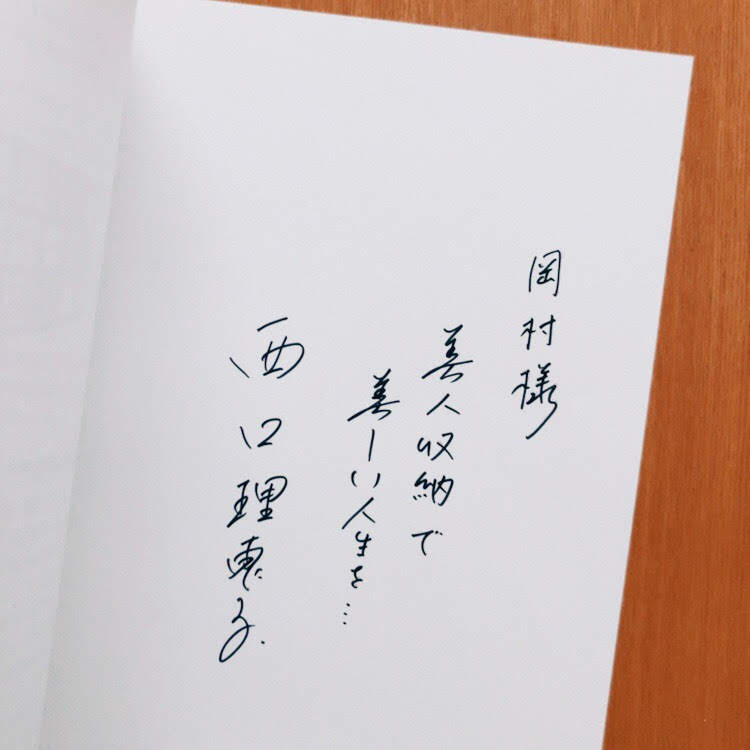 岡村様
美人収納で
美しい人生を…
西口理恵子